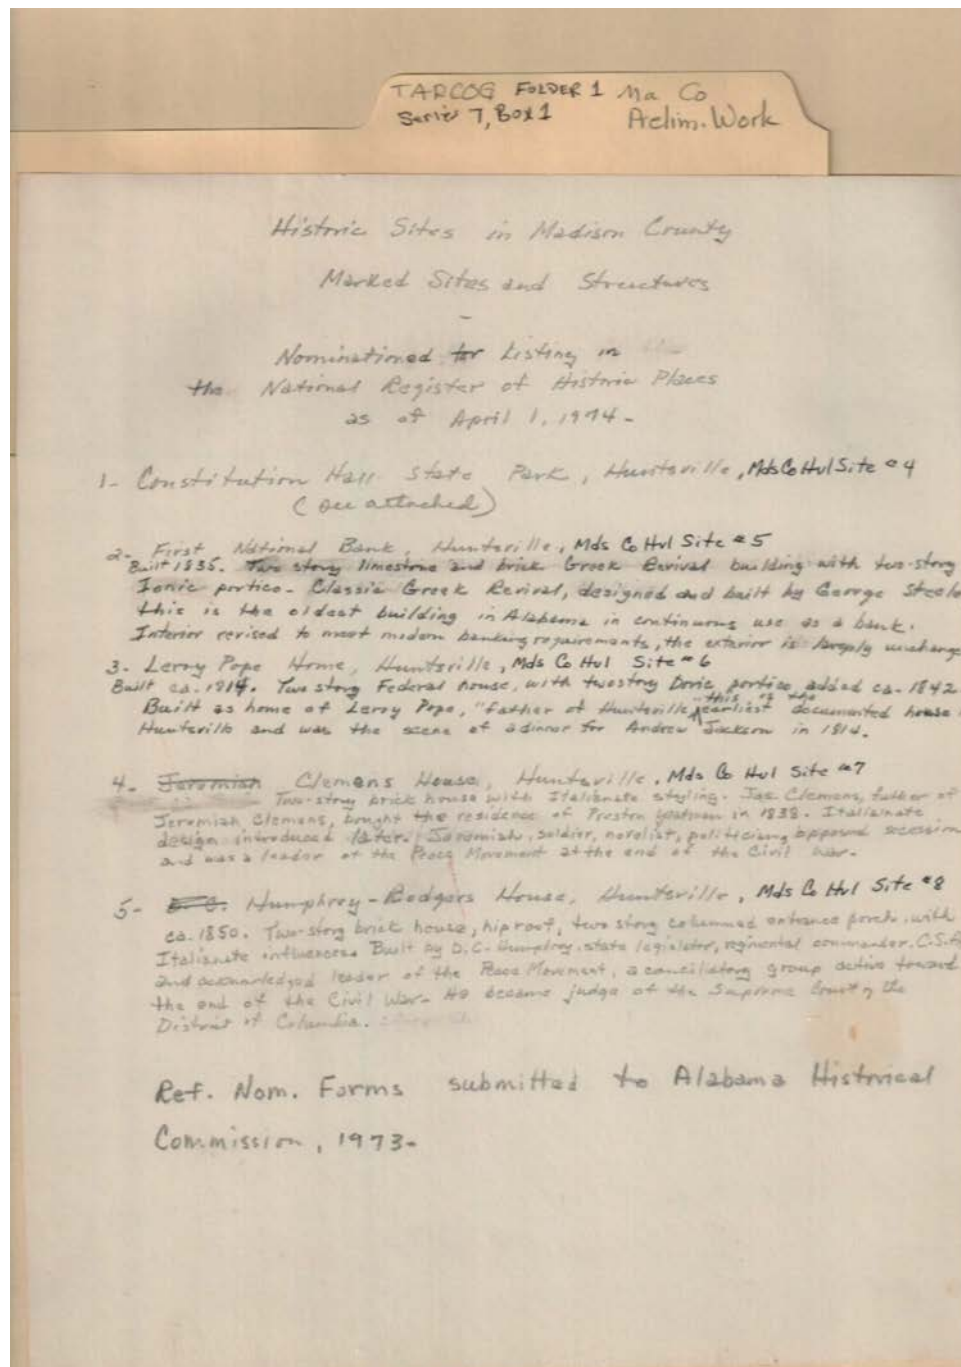 TARCOG FOLDER 1 Ma Co
Series 7, Box 1 Prelim. Work
Historic Sites in Madison County
Marked Sites and Structures
-
Nominationed for Listing in
the National Register of Historic Places
as of April 1, 1974-
1- Constitution Hall State Park, Huntsville, Mds Co Hvl Site #4
(see attached)
2- First National Bank, Huntsville, Mds Co Hvl Site #5
Built 1835. Two story limestone and brick Greek Revival building with two-story
Ionic portico- Classic Greek Revival, designed and built by George Steele
this is the oldest building in Alabama in continuous use as a bank.
Interior revised to meet modern banking requirements, the exterior is largely unchange
3- Leroy Pope Home, Huntsville, Mds Co Hvl Site #6
Built ca. 1814. Two story Federal house, with twostory Doric portico added ca. 1842
Built as home of Leroy Pope, "father of Huntsville, this is the earliest documented house
Huntsville and was the scene of a dinner for Andrew Jackson in 1814.
4- Jeremiah Clemens House, Huntsville, Mds Co Hvl Site #7
Two-story brick house with Italianate styling. Jas Clemens, father of
Jeremiah Clemens, bought the residence of Preston Yeatman in 1838. Italianate
design introduced later. Jeremiah, soldier, novelist, politician, opposed secession
and was a leader of the Peace Movement at the end of the Civil War-
5- D. C. Humphrey-Rodgers House, Huntsville, Mds Co Hvl Site #8
ca. 1850. Two-story brick house, hip roof, two story columned entrance porch, with
Italianate influences. Built by D.C. Humphrey, state legislator, regimental commander C.S.A.
and acknowledged leader of the Peace Movement, a conciliatory group active toward
the end of the Civil War- He became judge of the Supreme Court of the
District of Columbia.
Ref. Nom. Forms submitted to Alabama Histrical
Commission, 1973-